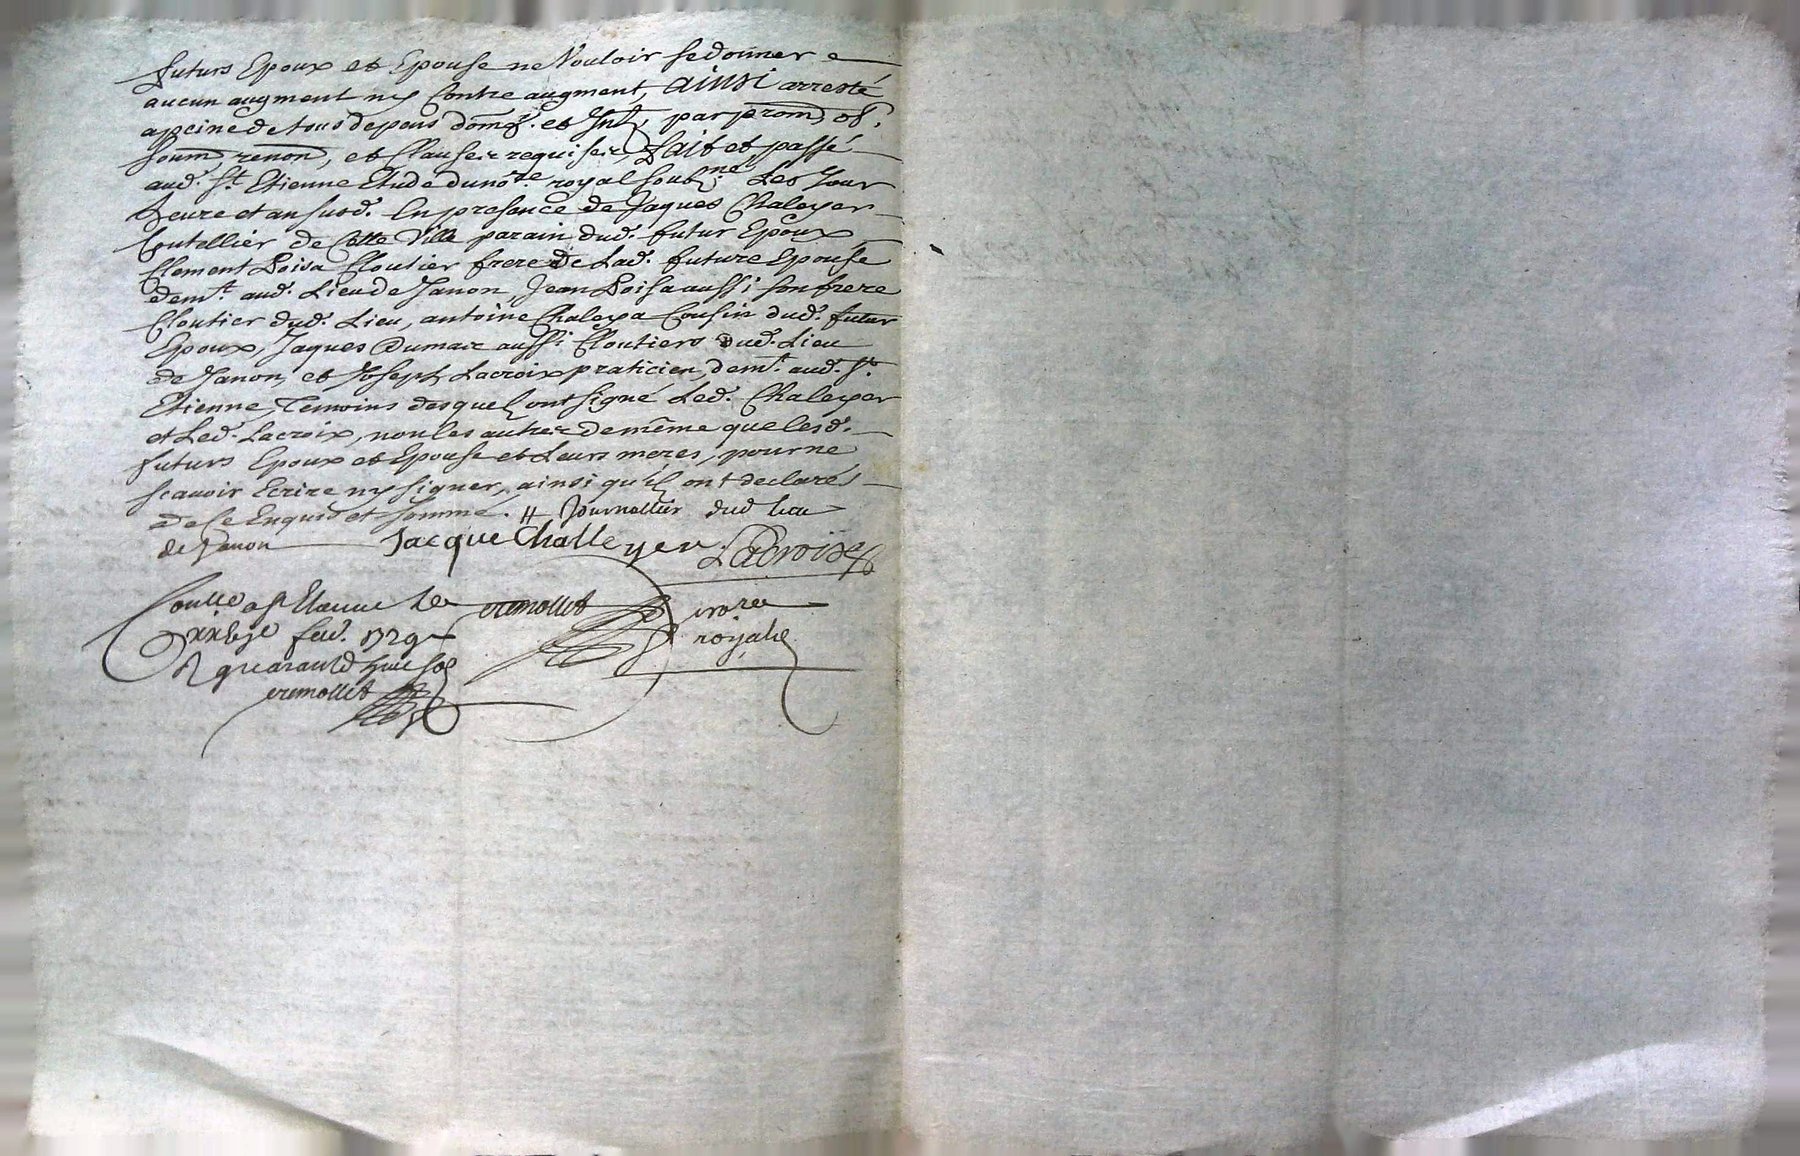 futurs Epoux et Epouse ne Vouloir se donner
aucun augment ny Contre augment, ainsi arresté
a peine de tous depens dom. et Int. par prom. ob.
soum, renon, et Clauses requises, fait et passé
aud. St. Etienne Etude du no.re royal soub.né Les Jour
heure et an susd. En presence de Jaques Chaleyer
Coutellier de Cette Ville parain dud. futur Epoux,
Clement Loisa Cloutier frere de Lad. future Epouse
dem.t aud. Lieu de Janon, Jean Loisa aussi son frere
Cloutier dud. Lieu, antoine Chaleya Cousin dud. futur
Epoux, Jaques Dumair aussi Cloutiers dud. Lieu
de Janon, et Joseph Lacroix praticien, dem.t aud. St.
Etienne, Temoins desquels ont signé Led. Chaleyer
et Led. Lacroix, non les autres de même que lesd.
futurs Epoux et Epouse et Leurs meres, pour ne
scavoir Ecrire ny signer, ainsi qu'ils ont declarés
de Ce Enquis et sommé. # Journallier dud lieu
de Janon Jacque Challeyer Lacroix
a St Etienne Le
feu. 1729
royal